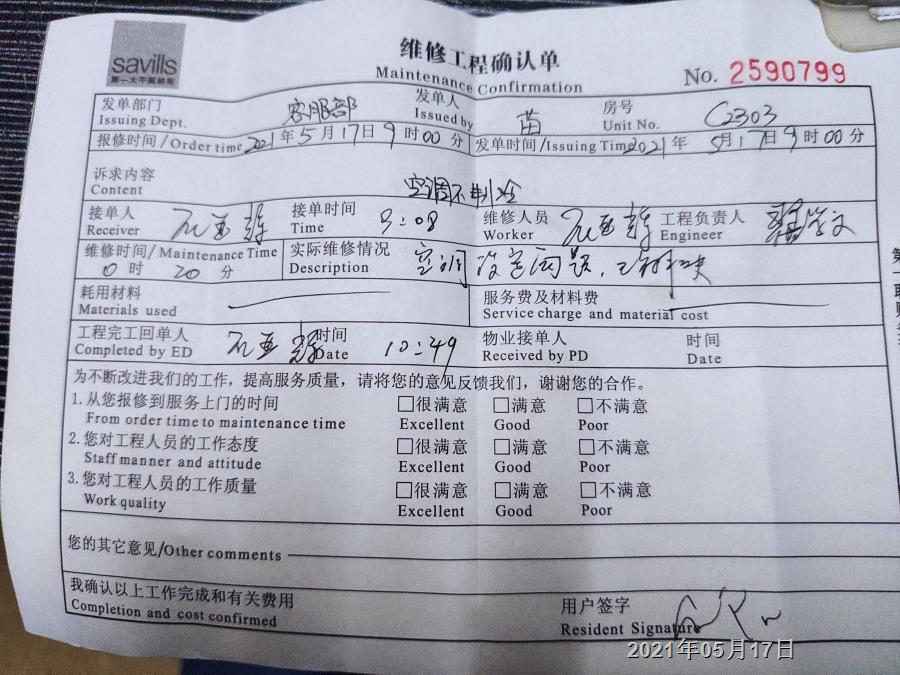 savills
第一太平戴维斯
维修工程确认单
Maintenance Confirmation
No. 2590799
发单部门 客服部 发单人 苗 房号 C2303
Issuing Dept. Issued by Unit No.
报修时间/Order time 2021年5月17日9时00分 发单时间/Issuing Time 2021年5月17日9时00分
诉求内容 空调不制冷
Content
接单人 接单时间 9:08 维修人员 工程负责人
Receiver Time Worker Engineer
维修时间/Maintenance Time 实际维修情况 空调没有问题,
0时20分 Description
耗用材料 服务费及材料费
Materials used Service charge and material cost
工程完工回单人 时间 10:49 物业接单人 时间
Completed by ED Date Received by PD Date
为不断改进我们的工作，提高服务质量，请将您的意见反馈我们，谢谢您的合作。
1.从您报修到服务上门的时间 □很满意 □满意 □不满意
From order time to maintenance time Excellent Good Poor
2.您对工程人员的工作态度 □很满意 □满意 □不满意
Staff manner and attitude Excellent Good Poor
3.您对工程人员的工作质量 □很满意 □满意 □不满意
Work quality Excellent Good Poor
您的其它意见/Other comments
我确认以上工作完成和有关费用 用户签字
Completion and cost confirmed Resident Signature
2021年05月17日